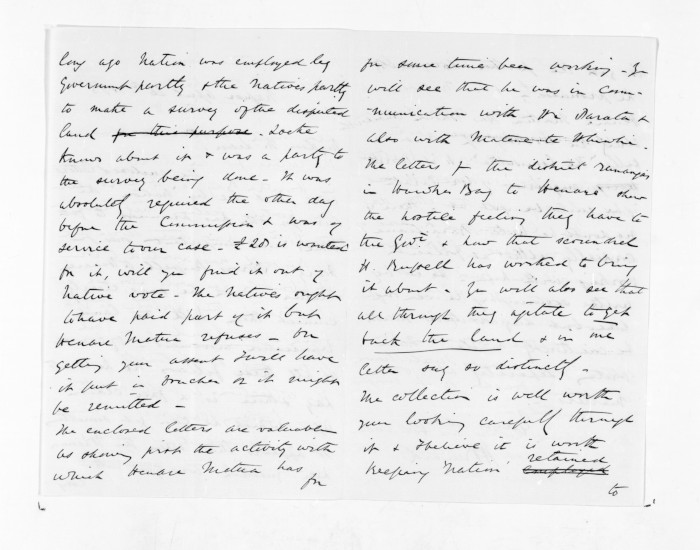 long ago Nation was employed by
Government partly & the Natives partly
to make a survey of the disputed
land for this purpose. Locke
knows about it & was a party to
the survey being done - It was
absolutely required the other day
before the Commission & was of
service to our case - £20 is wanted
for it, will you find it out of
Native vote - The Natives ought
to have paid part of it but
Henare Matua refuses - On
getting your assent I will have
it put in voucher or it might
be remitted -
The enclosed letters are valuable
as showing the activity with
which Henare Matua has
for
for some time been working - You
will see that he was in Com-
-munication with Wi Parata &
also with Matene te Whiwhi.
The letters fr the district runangas
in Hawkes Bay to Henare show
the hostile feeling they have to
the Govt. & how that scoundrel
H. Russell has worked to bring
it about - You will also see that
all through they agitate to get
back the land & in one
letter say so distinctly -
The collection is well worth
your looking carefully through
it & I believe it is worth
retained
keeping Nation employed
to